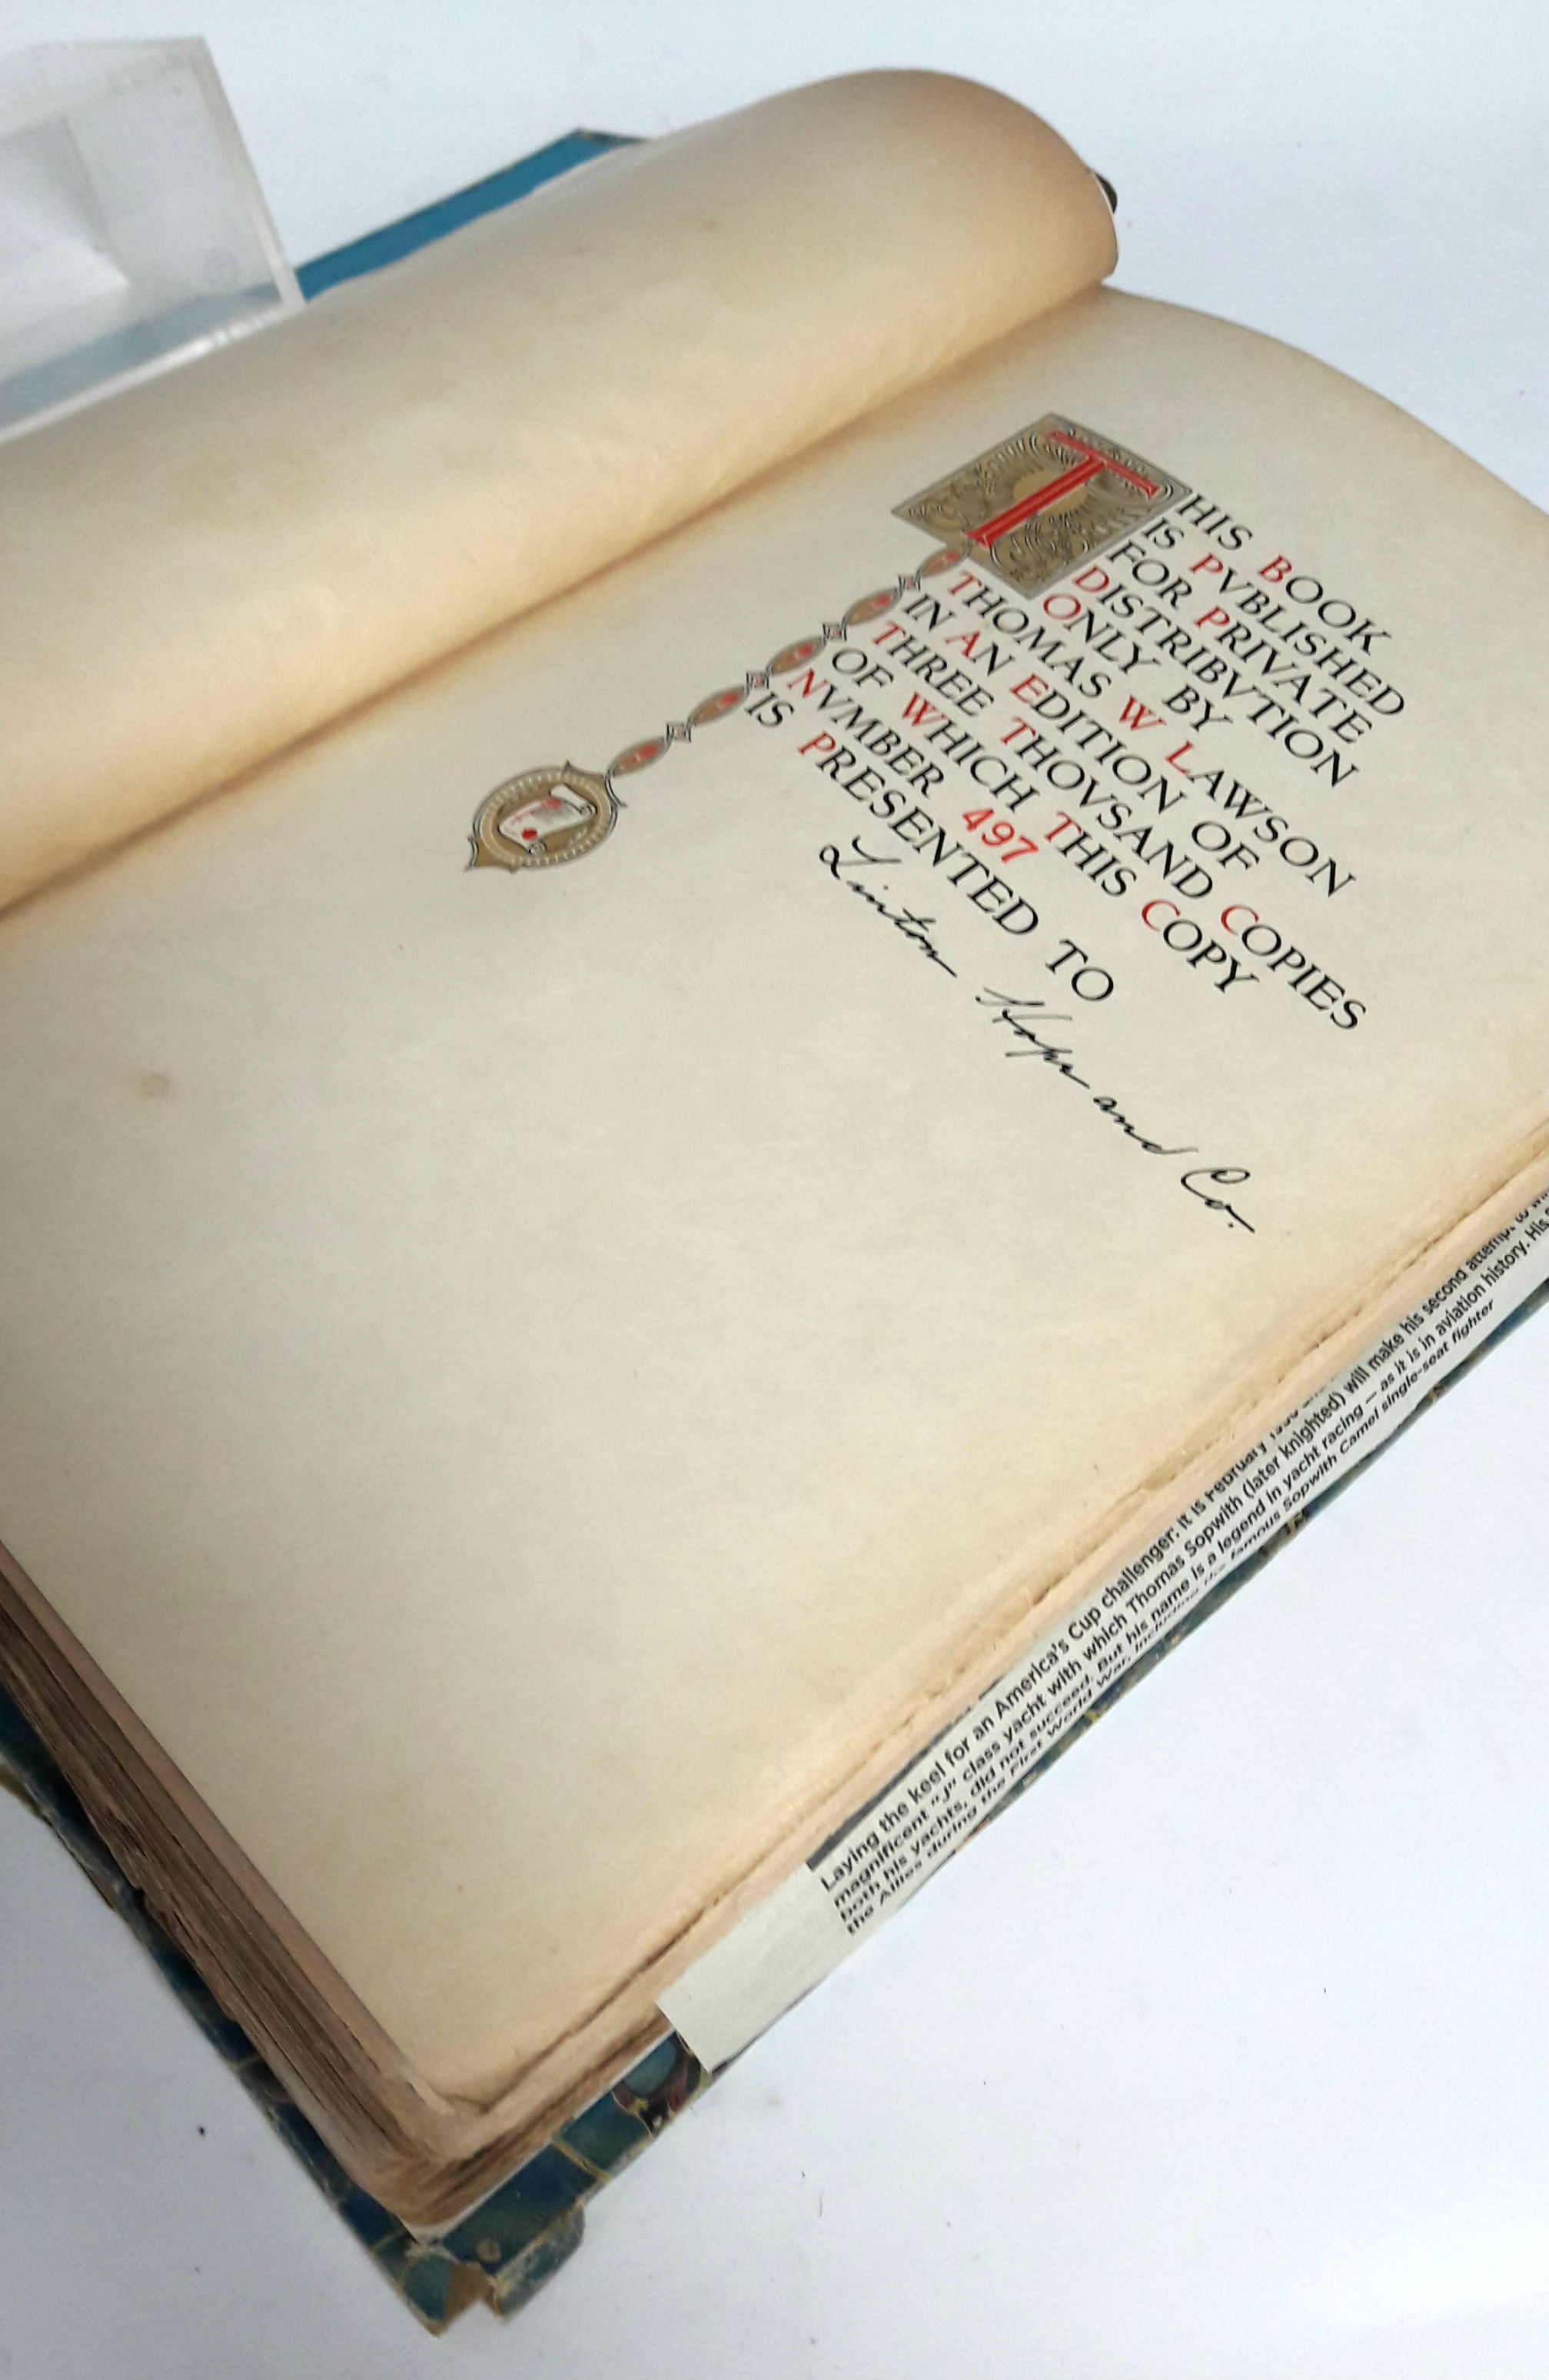 THIS BOOK
IS PVBLISHED
FOR PRIVATE
DISTRIBVTION
ONLY BY
THOMAS W LAWSON
IN AN EDITION OF
THREE THOVSAND COPIES
OF WHICH THIS COPY
NVMBER 497
IS PRESENTED TO
Linton Hope and Co.
Laying the keel for an America's Cup challenger: it is February
magnificent "J" class yacht with which Thomas Sopwith (later knighted) will make his second attempt to
both his yachts, did not succeed. But his name is a legend in yacht racing — as it is in aviation history. His
the Allies during the First World War, including the famous Sopwith Camel single-seat fighter